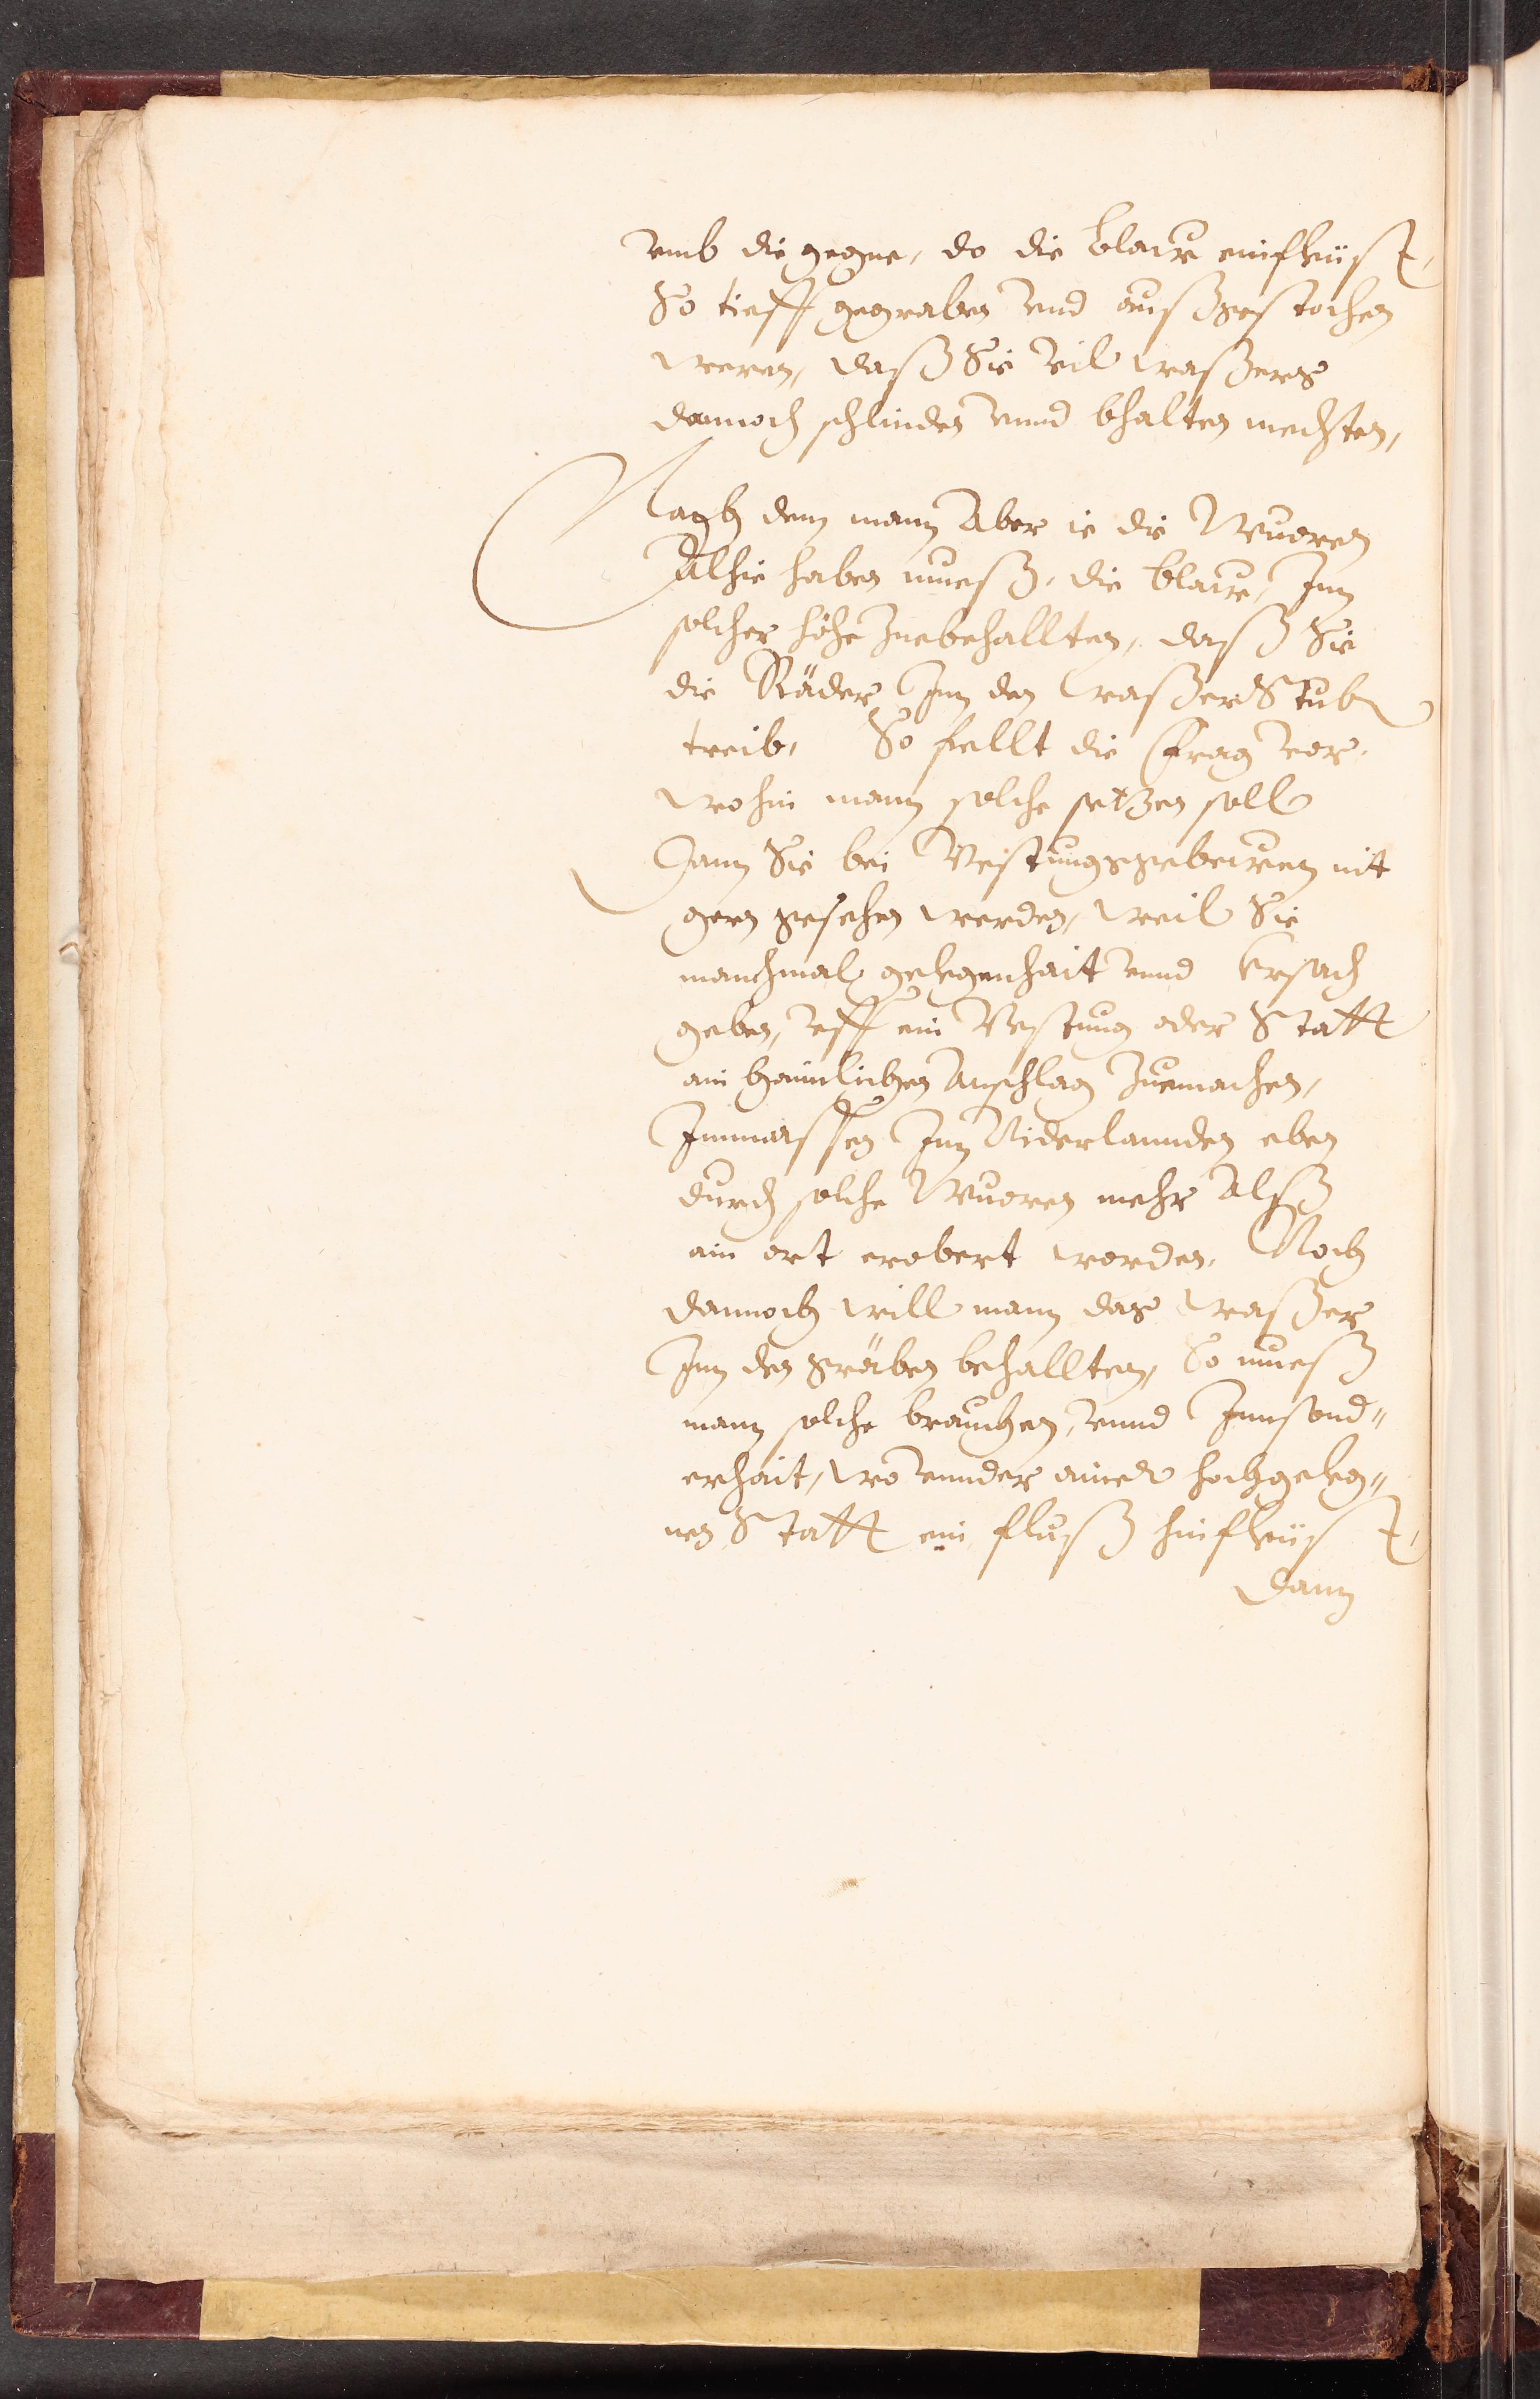 vmb die gegne, do die Blaw einfleüst,
So tieff gegraben vnd außgestochen
weren, daß Sie vil waßers
dannoch schlinden vnnd bhalten mechsten,
Nach dem mann Aber ie die Wuoren
Alhie haben mueß, die Blaw, Inn
solcher höhe Zuebehallten, daß Sie
die Räder Inn den WaßerStub
treib, So fellt die Frag vor,
wohin mann solche setzen soll
Dann Sie bei Vestunggebewen nit
gern gesehen werden, weil Sie
manchmal gelegenhait vnnd Vrsach
geben, vff ein Vestung oder Statt
ain haimlichen Anschlag Zuemachen,
Innmassen Inn Niderlannden eben
durch solche Wuoren mehr Alß
ain ort erobert worden, Noch
dannoch will mann das waßer
Inn den gräben behallten, So mueß
mann solche brauchen, vnnd Innsond"
erhait, wo vnnder ainer hochgeleg"
nen Statt ein fluß hinfleüst,
Dann